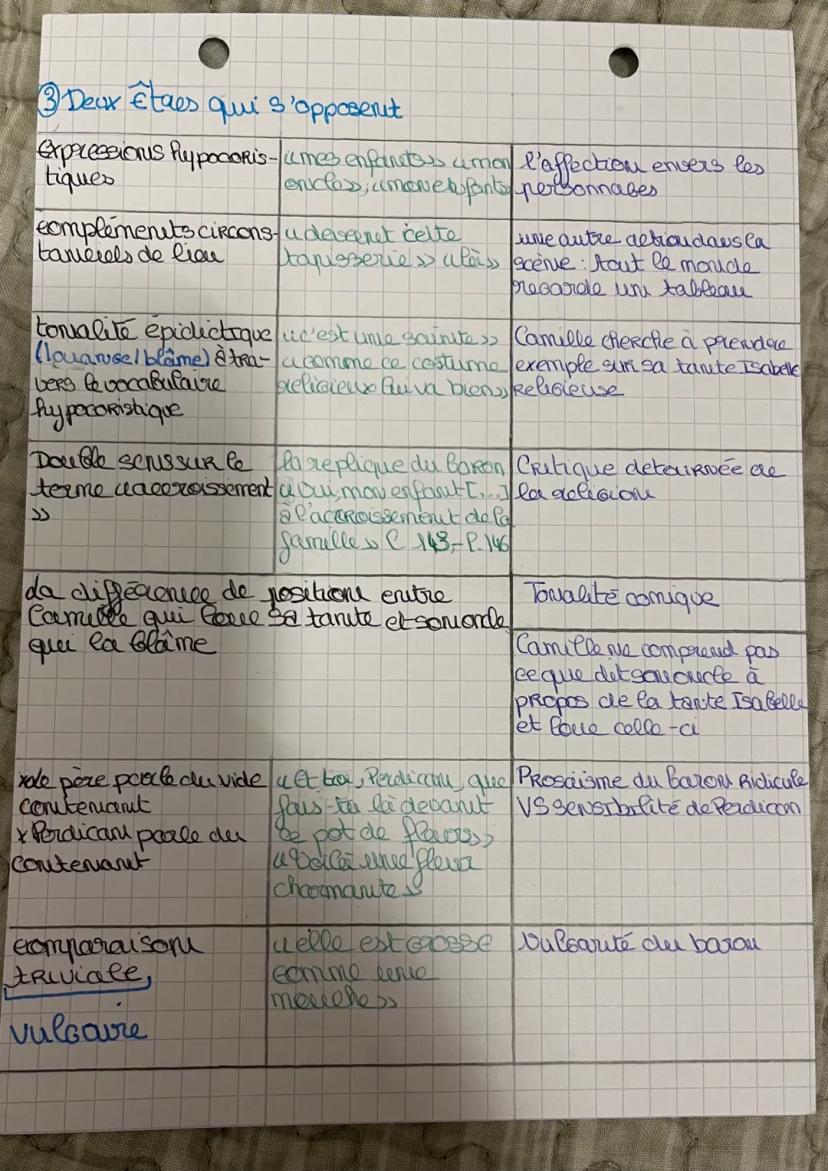 ③ Deux Êtres qui s'opposent
expressions hypocoris-
tiques
« mes enfants » « mon
oncle », « mon enfant »
l'affection envers les
personnages
compléments circons-
tanciels de lieu
« devant cette
tapisserie » « là »
une autre action dans la
scène : tout le monde
regarde un tableau
tonalité épidictique
(louange/blâme) à tra-
vers le vocabulaire
hypocoristique
« c'est une sainte »
« comme ce costume
religieux lui va bien »
Camille cherche à prendre
exemple sur sa tante Isabelle
Religieuse
Double sens sur le
terme « accroissement
»
la replique du baron
« Oui, mon enfant [...]
à l'accroissement de la
famille » l 143-l.146
Critique detournée de
la religion
La différence de position entre
Camille qui loue sa tante et son oncle
qui la blâme
Tonalité comique
Camille ne comprend pas
ce que dit son oncle à
propos de la tante Isabelle
et loue celle-ci
x le père parle du vide
contenant
x Perdican parle du
contenant
« et toi, Perdican, que
fais-tu là devant
ce pot de fleurs »
« Voilà une fleur
charmante »
Prosaïsme du Baron Ridicule
VS sensibilité de Perdican
comparaison
triviale,
vulgaire
« elle est grosse
comme une
mouche »
Vulgarité du baron